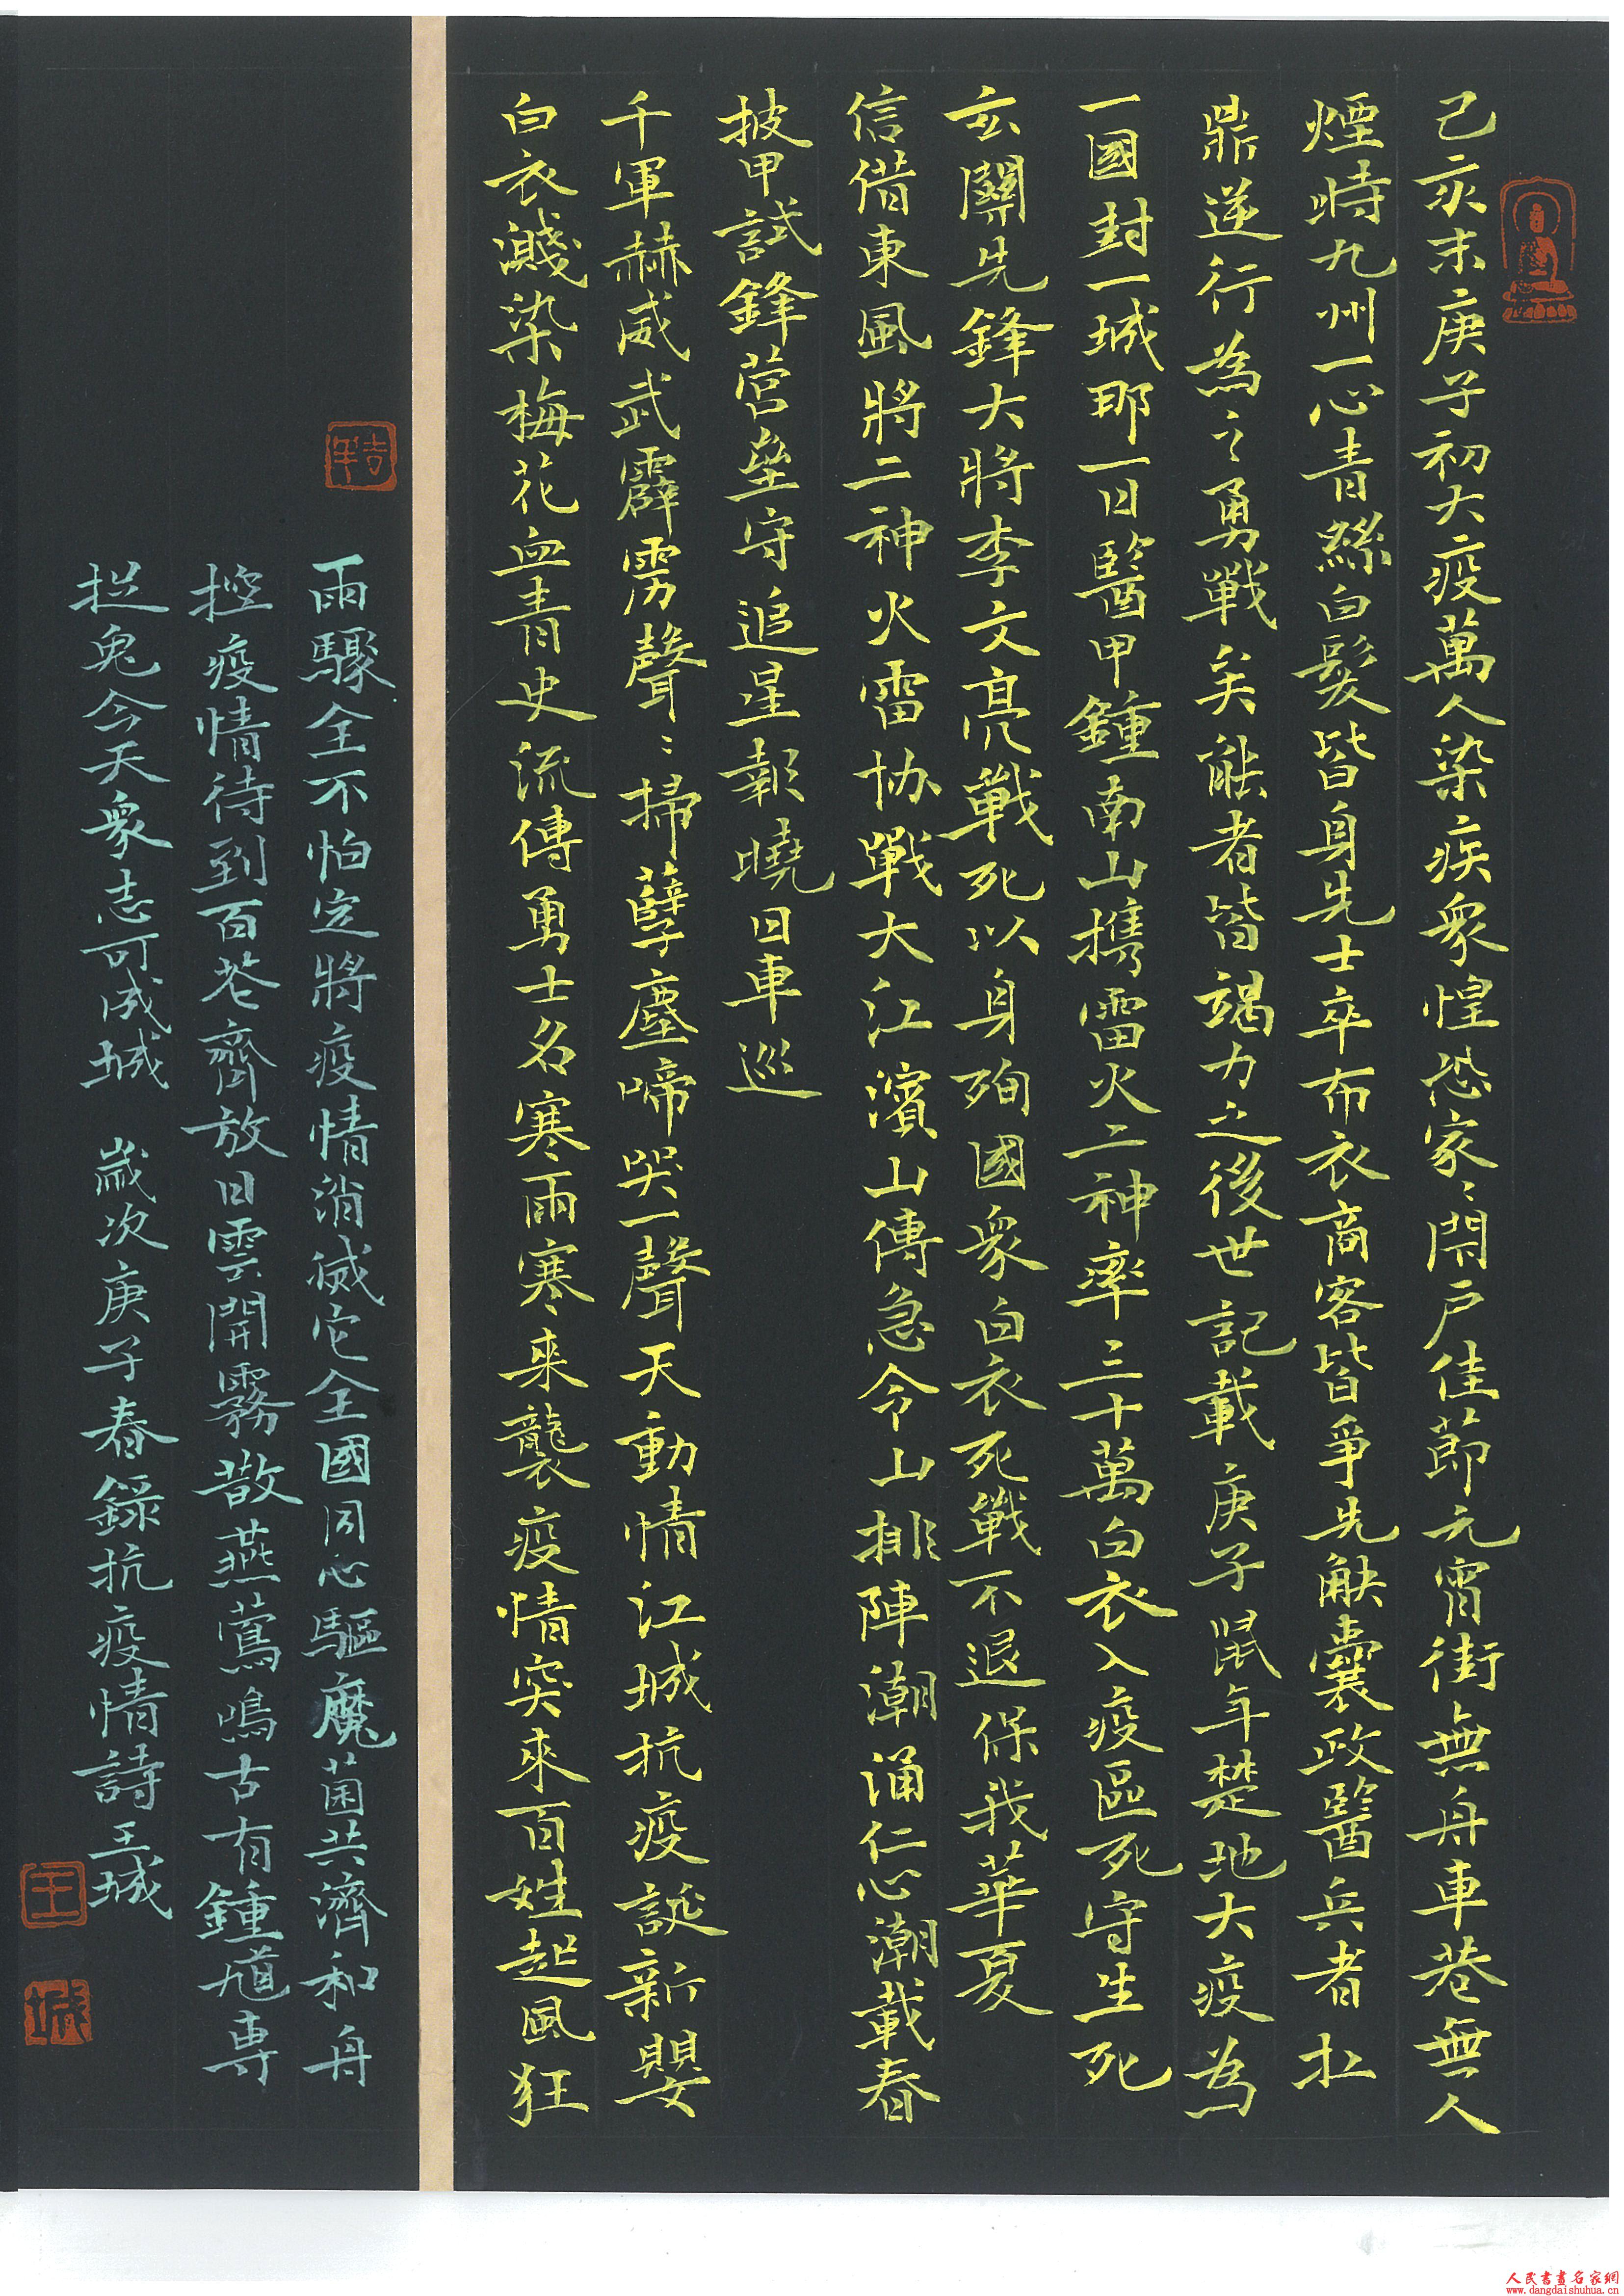 己亥末庚子初大疫萬人染疾衆惶恐家々閉戶佳節元宵街無舟車巷無人
煙時九州一心青絲白髮皆身先士卒布衣商客皆爭先解囊政醫兵者扛
鼎逆行為之勇戰矣能者皆竭力之後世記載庚子鼠年楚地大疫為
一國封一城耶一日醫甲鍾南山携雷火二神率三十萬白衣入疫區死守生死
玄關先鋒大將李文亮戰死以身殉國衆白衣死戰不退保我華夏
信借東風將二神火雷協戰大江濱山傳急令山排陣潮涌仁心潮載春
披甲試鋒營壘守追星報曉日車巡
千軍赫威武霹雳聲々掃孽塵啼哭一聲天動情江城抗疫誕新嬰
白衣濺染梅花血青史流傳勇士名寒雨寒來襲疫情突來百姓起風狂
雨驟全不怕定將疫情消滅它全國同心驅魔菌共濟和舟
控疫情待到百花齊放日雲開霧散燕鶯鳴古有鍾馗專
捉鬼今天衆志可成城 歲次庚子春錄抗疫情詩王城
吉羊
王
城
人民書畫名家網
www.dangdaishuhua.cn